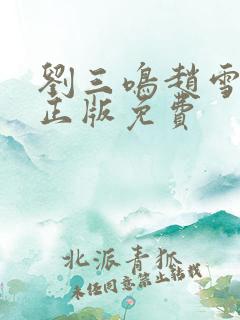 劉三鳴趙雪
正版免費
北派青狐
未任同意禁止転載